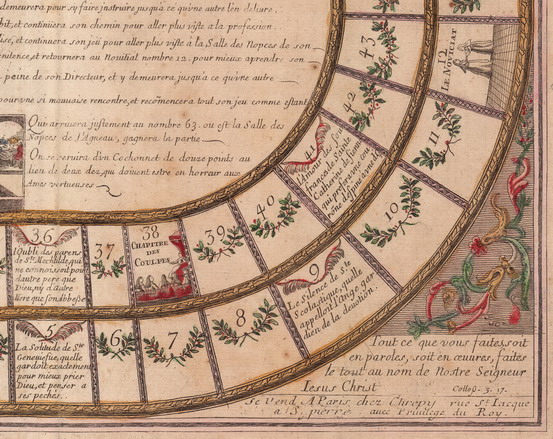 demeurera pour s'y faire instruire jusqu'a ce qu'vne autre l'en dehors.
bit, et continüera son chemin pour aller plus viste a la profession
lise, et continuera son jeu pour aller plus viste à la Salle des Nopces de son
nitence, et retournera au Nouitiat nombre 12. pour mieux aprendre son
peine de son Directeur, et y demeurera jusqu'a ce qu'vne autre
pour vne si mauuaise rencontre, et recõmencera tout son jeu comme estant
Qui arriuera justement au nombre 63. ou est la Salle des
Nopces de l'Agneau, gagnera la partie
On se seruira d'vn Cochonnet de douze points au
lieu de deux dez, qui doiuent estre en horreur aux
Ames vertueuses
43
12
LE NOVICIAT
42
11
41
40
10
39
38
CHAPITRE
DES
COULPES
37
36
l'Oubli des parens
de Ste Mechtilde, qui
ne connoissoit point
d'autre pere que
Dieu, ny d'autre
Mere que son Abbesse
9
Le Silence de Ste
Scolastique, qu'elle
appelloit l'Ange gar
dien de la deuotion.
8
7
6
5
La Solitude de Ste
Geneuiefue, qu'elle
gardoit exactement
pour mieux prier
Dieu, et penser a
ses pechés.
Tout ce que vous faites, soit
en paroles, soit en œuures, faites
le tout au nom de Nostre Seigneur
Iesus Christ
Coloss. 3. 17.
Se Vend A Paris, chez Chrepy rue St Iacque
a S. pierre auec Priuilege du Roy.